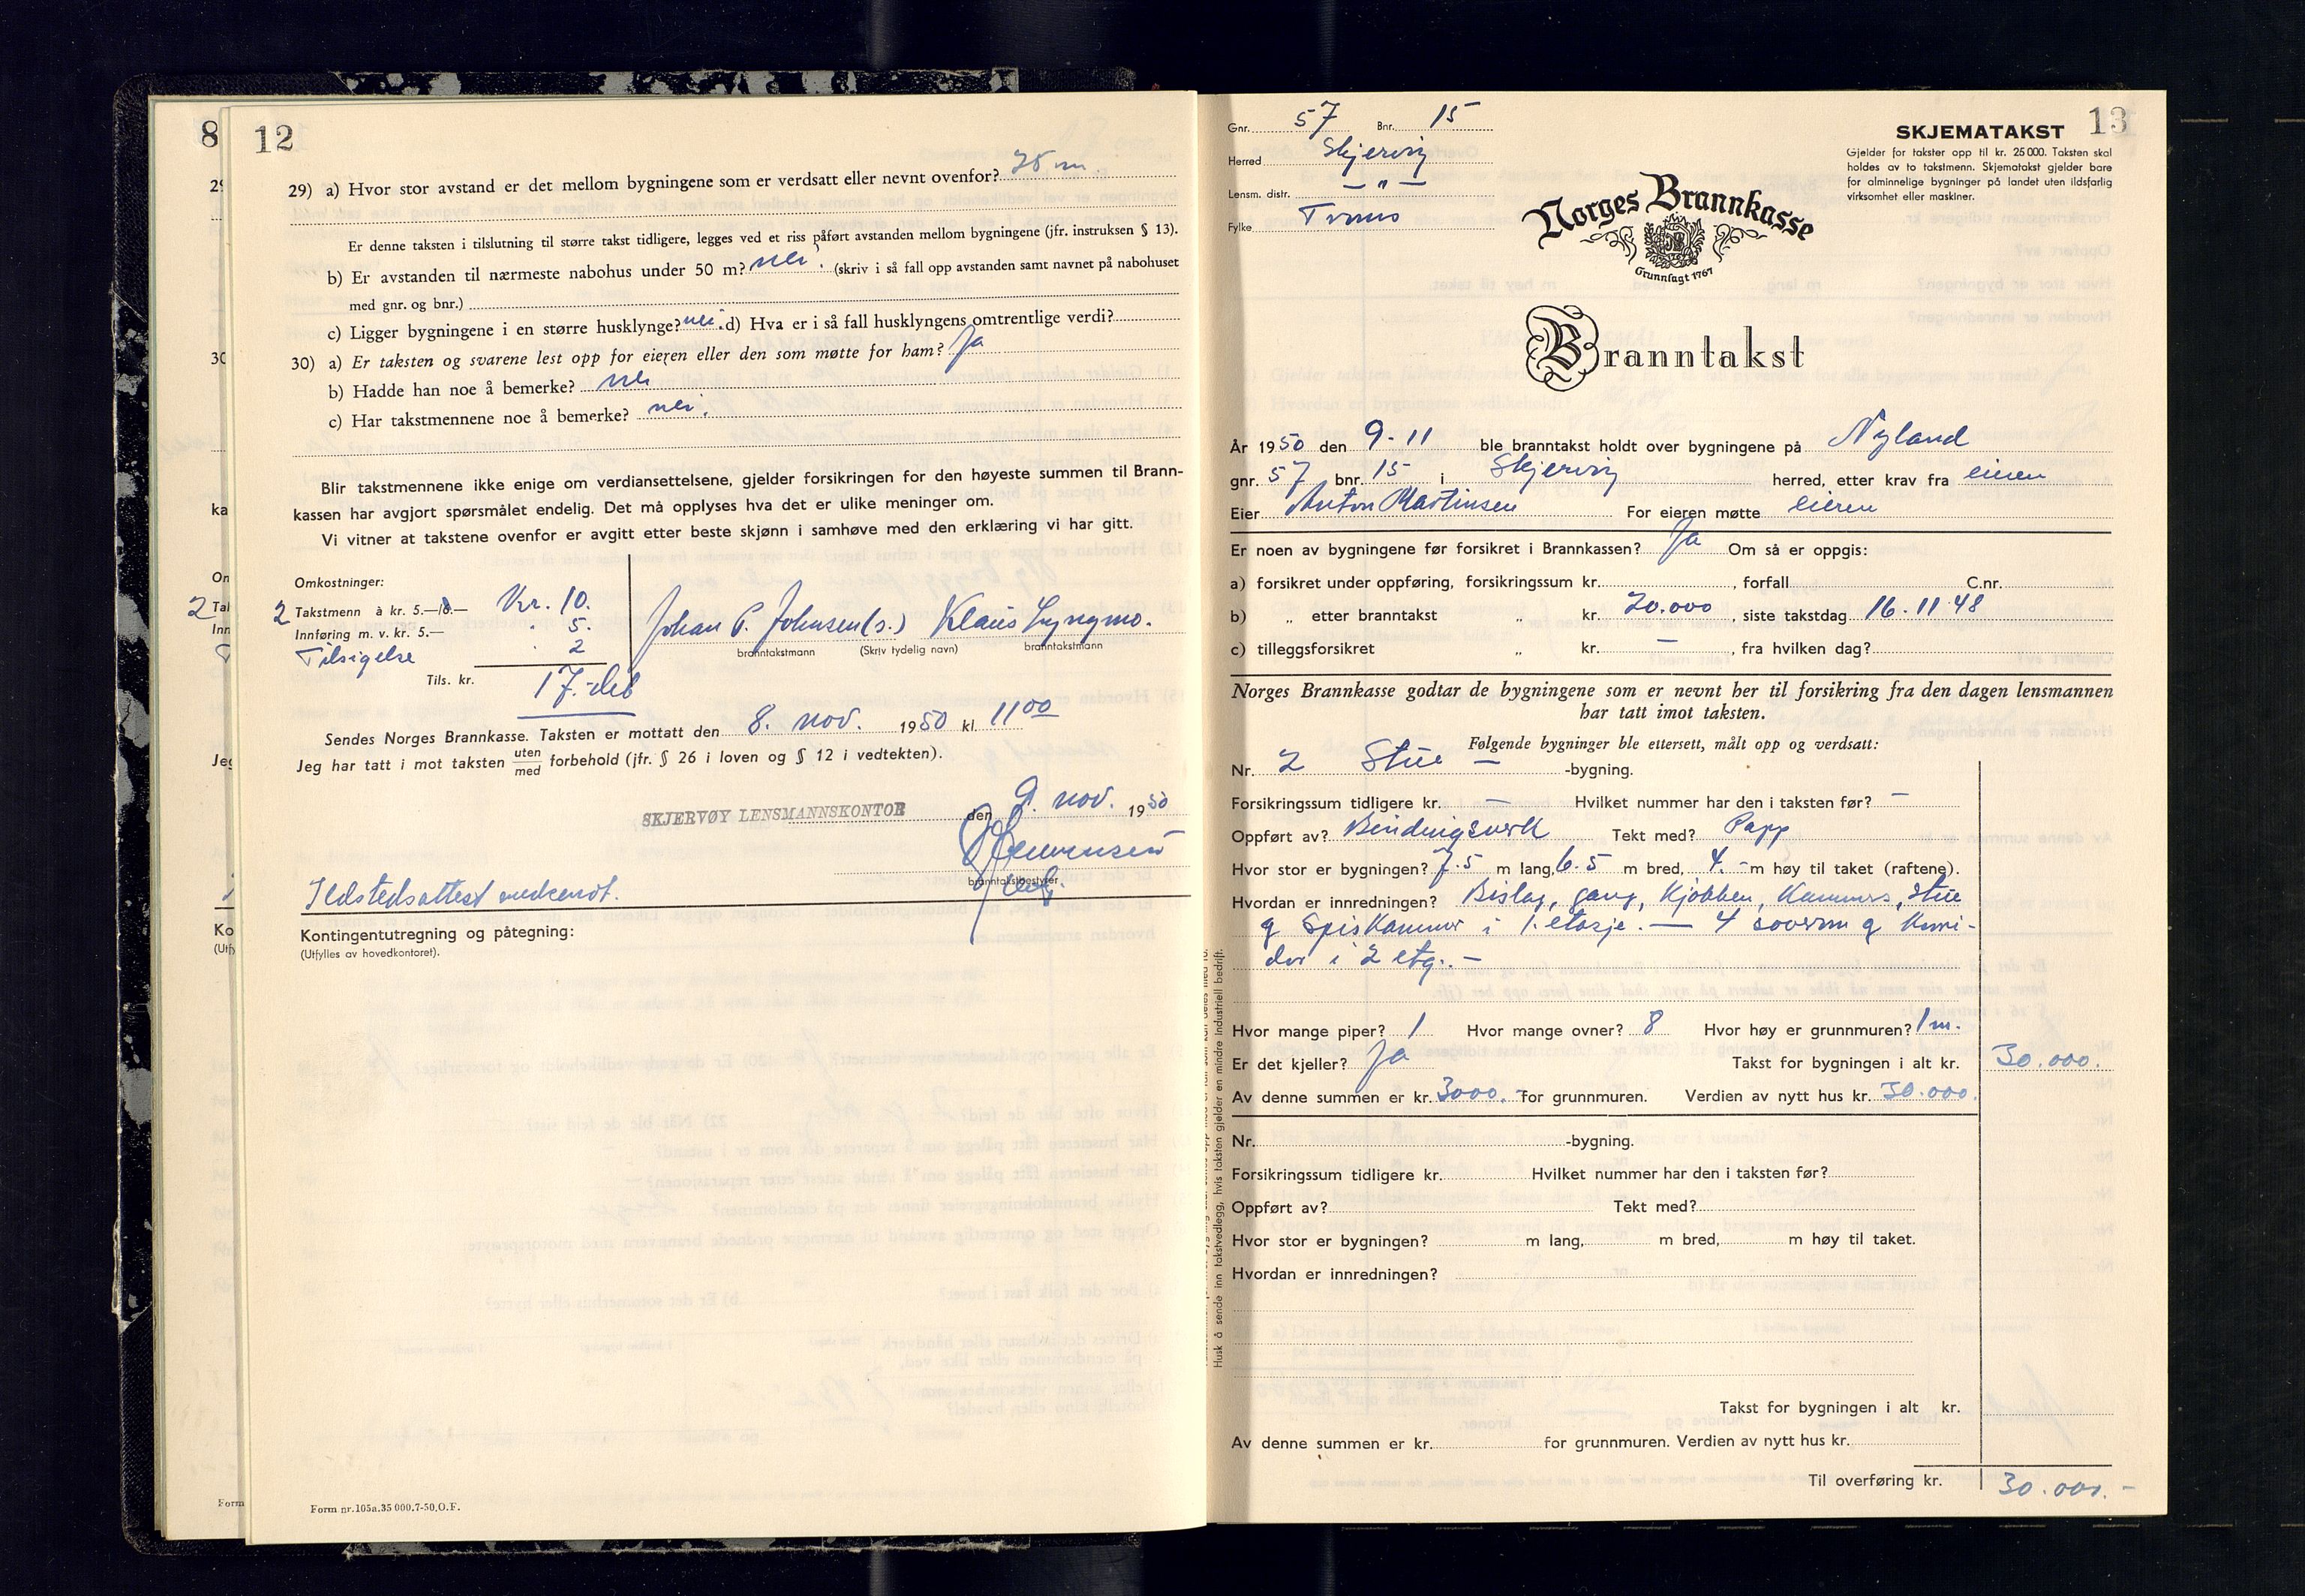 8
12
29) a) Hvor stor avstand er det mellom bygningene som er verdsatt eller nevnt ovenfor? 75 m.
Er denne taksten i tilslutning til større takst tidligere, legges ved et riss påført avstanden mellom bygningene (jfr. instruksen § 13).
b) Er avstanden til nærmeste nabohus under 50 m? nei. (skriv i så fall opp avstanden samt navnet på nabohuset
med gnr. og bnr.)
c) Ligger bygningene i en større husklynge? nei. d) Hva er i så fall husklyngens omtrentlige verdi?
30) a) Er taksten og svarene lest opp for eieren eller den som møtte for ham? Ja
b) Hadde han noe å bemerke? nei
c) Har takstmennene noe å bemerke? nei.
Blir takstmennene ikke enige om verdiansettelsene, gjelder forsikringen for den høyeste summen til Brann-
kassen har avgjort spørsmålet endelig. Det må opplyses hva det er ulike meninger om.
Vi vitner at takstene ovenfor er avgitt etter beste skjønn i samhøve med den erklæring vi har gitt.
Omkostninger:
2 Takstmenn à kr. 5.— Kr. 10.
Innføring m. v. kr. 5.— . 5.
Tilsigelse . 2
Tils. kr. 17.-
Johan P. Johnsen (s.) Klaus Lyngmo.
branntakstmann (Skriv tydelig navn) branntakstmann
Sendes Norges Brannkasse. Taksten er mottatt den 8. nov. 1950 kl. 11 00
Jeg har tatt i mot taksten uten/med forbehold (jfr. § 26 i loven og § 12 i vedtekten).
SKJERVØY LENSMANNSKONTOR den 9. nov. 1950
branntakstbestyrer
Ildstedsattest vedsendt.
Kontingentutregning og påtegning:
(Utfylles av hovedkontoret).
Form nr.105a.35 000.7-50,O.F.
13
Gnr. 57 Bnr. 15
Herred Skjervøy
Lensm. distr. — " —
Fylke Troms
SKJEMATAKST
Gjelder for takster opp til kr. 25 000. Taksten skal
holdes av to takstmenn. Skjematakst gjelder bare
for alminnelige bygninger på landet uten ildsfarlig
virksomhet eller maskiner.
Norges Brannkasse
Grunnlagt 1767
Branntakst
År 1950 den 9-11 ble branntakst holdt over bygningene på Nyland
gnr. 57 bnr. 15 i Skjervøy herred, etter krav fra eieren
Eier Anton Martinsen For eieren møtte eieren
Er noen av bygningene før forsikret i Brannkassen? Ja Om så er oppgis:
a) forsikret under oppføring, forsikringssum kr. , forfall C.nr.
b) „ etter branntakst „ kr. 20.000 , siste takstdag 16-11-48
c) tilleggsforsikret „ kr. — , fra hvilken dag?
Norges Brannkasse godtar de bygningene som er nevnt her til forsikring fra den dagen lensmannen
har tatt imot taksten.
Følgende bygninger ble ettersett, målt opp og verdsatt:
Nr. 2 Stue — -bygning.
Forsikringssum tidligere kr. — Hvilket nummer har den i taksten før? —
Oppført av? Bindingsverk Tekt med? Papp
Hvor stor er bygningen? 7.5 m lang, 6.5 m bred, 4.- m høy til taket (raftene).
Hvordan er innredningen? Bislag, gang, Kjøkken, Kammers, Stue
og Spiskammer i 1. etasje. — 4 soverum og Korri-
dor i 2 etg. —
Hvor mange piper? 1 Hvor mange ovner? 8 Hvor høy er grunnmuren? 1 m.
Er det kjeller? Ja Takst for bygningen i alt kr. 30.000.
Av denne summen er kr. 3000.- for grunnmuren. Verdien av nytt hus kr. 30.000.
Nr. -bygning.
Forsikringssum tidligere kr. Hvilket nummer har den i taksten før?
Oppført av? Tekt med?
Hvor stor er bygningen? m lang, m bred, m høy til taket.
Hvordan er innredningen?
Takst for bygningen i alt kr.
Av denne summen er kr. for grunnmuren. Verdien av nytt hus kr.
Til overføring kr. 30.000.-
Husk å sende inn takstvedlegg, hvis taksten gjelder en mindre industriell bedrift.